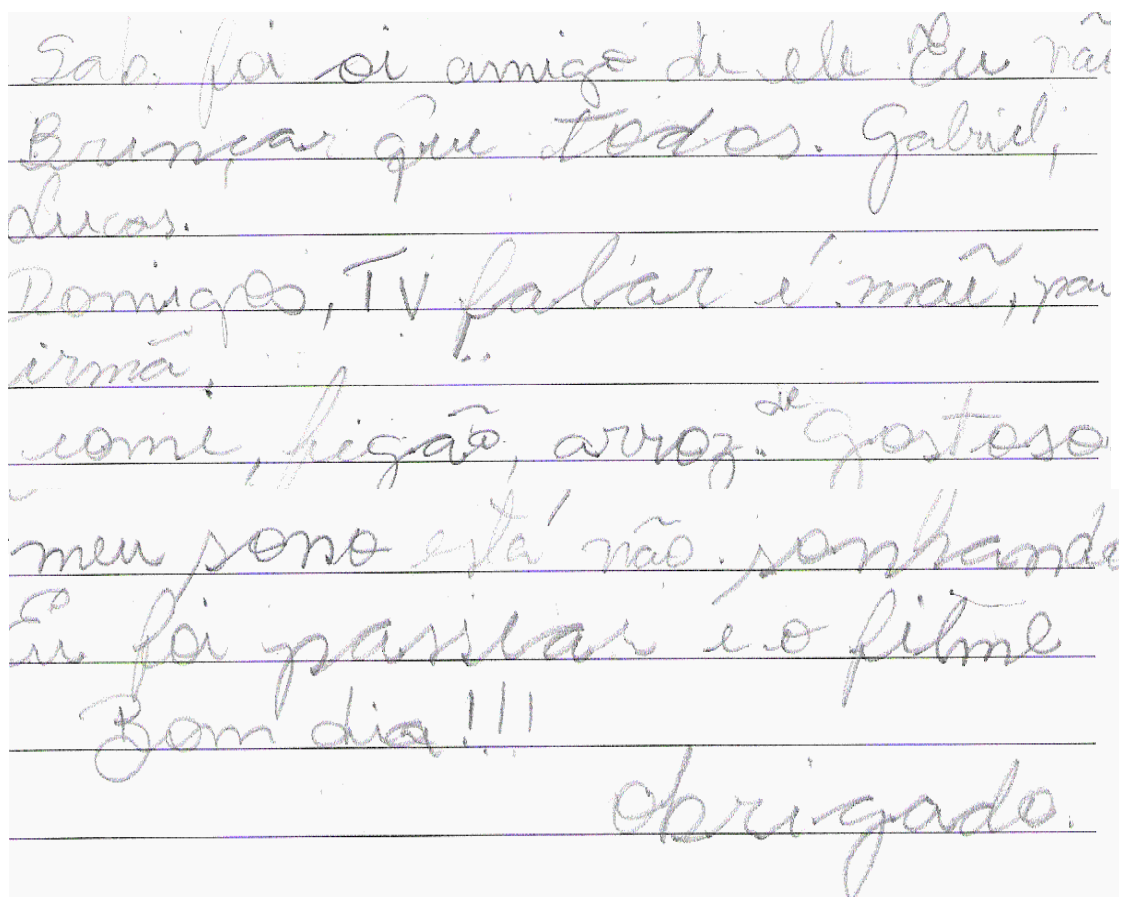 Sab. foi oi amigo di ele Eu não
Brincar que todos. Gabriel,
Lucas.
Domigos, TV falar é mãe, pai
irmã.
comi, figão, arroz. de gostoso
meu sono está não sonhando
Eu foi passear é o filme
Bom dia!!!
Obrigado.